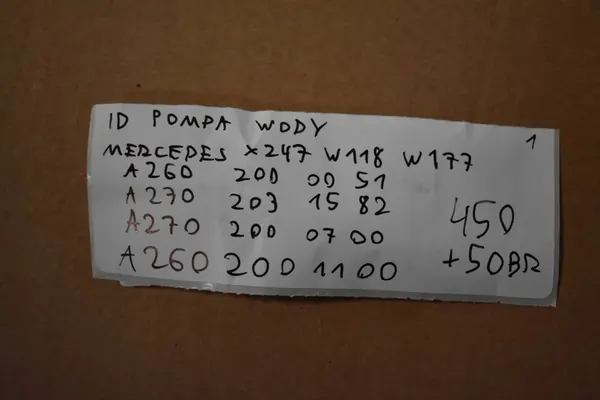 1
ID POMPA WODY
MERCEDES X247 W118 W177
A260 200 00 51
A270 203 15 82
A270 200 07 00
A260 200 11 00
450
+50BR